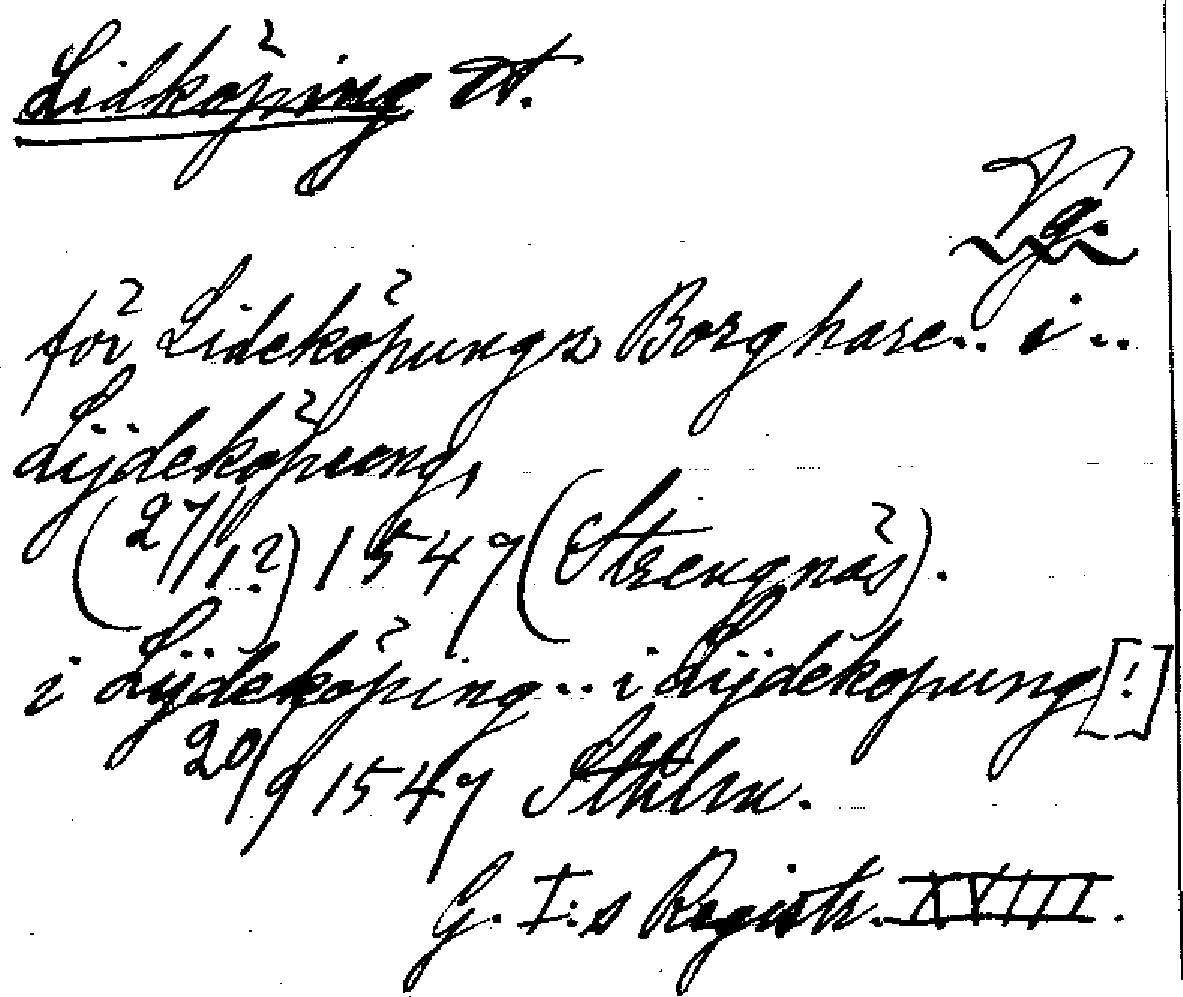 Lidköping st.
Vg.
för Lideköpungs Borghare.. i..
Lÿdeköpung,
(27/12) 1547 (Strengnäs).
i Lÿdeköping... i Lÿdekopung [!]
20/9 1547 Sthlm.
G. I:s Registr. XVIII.